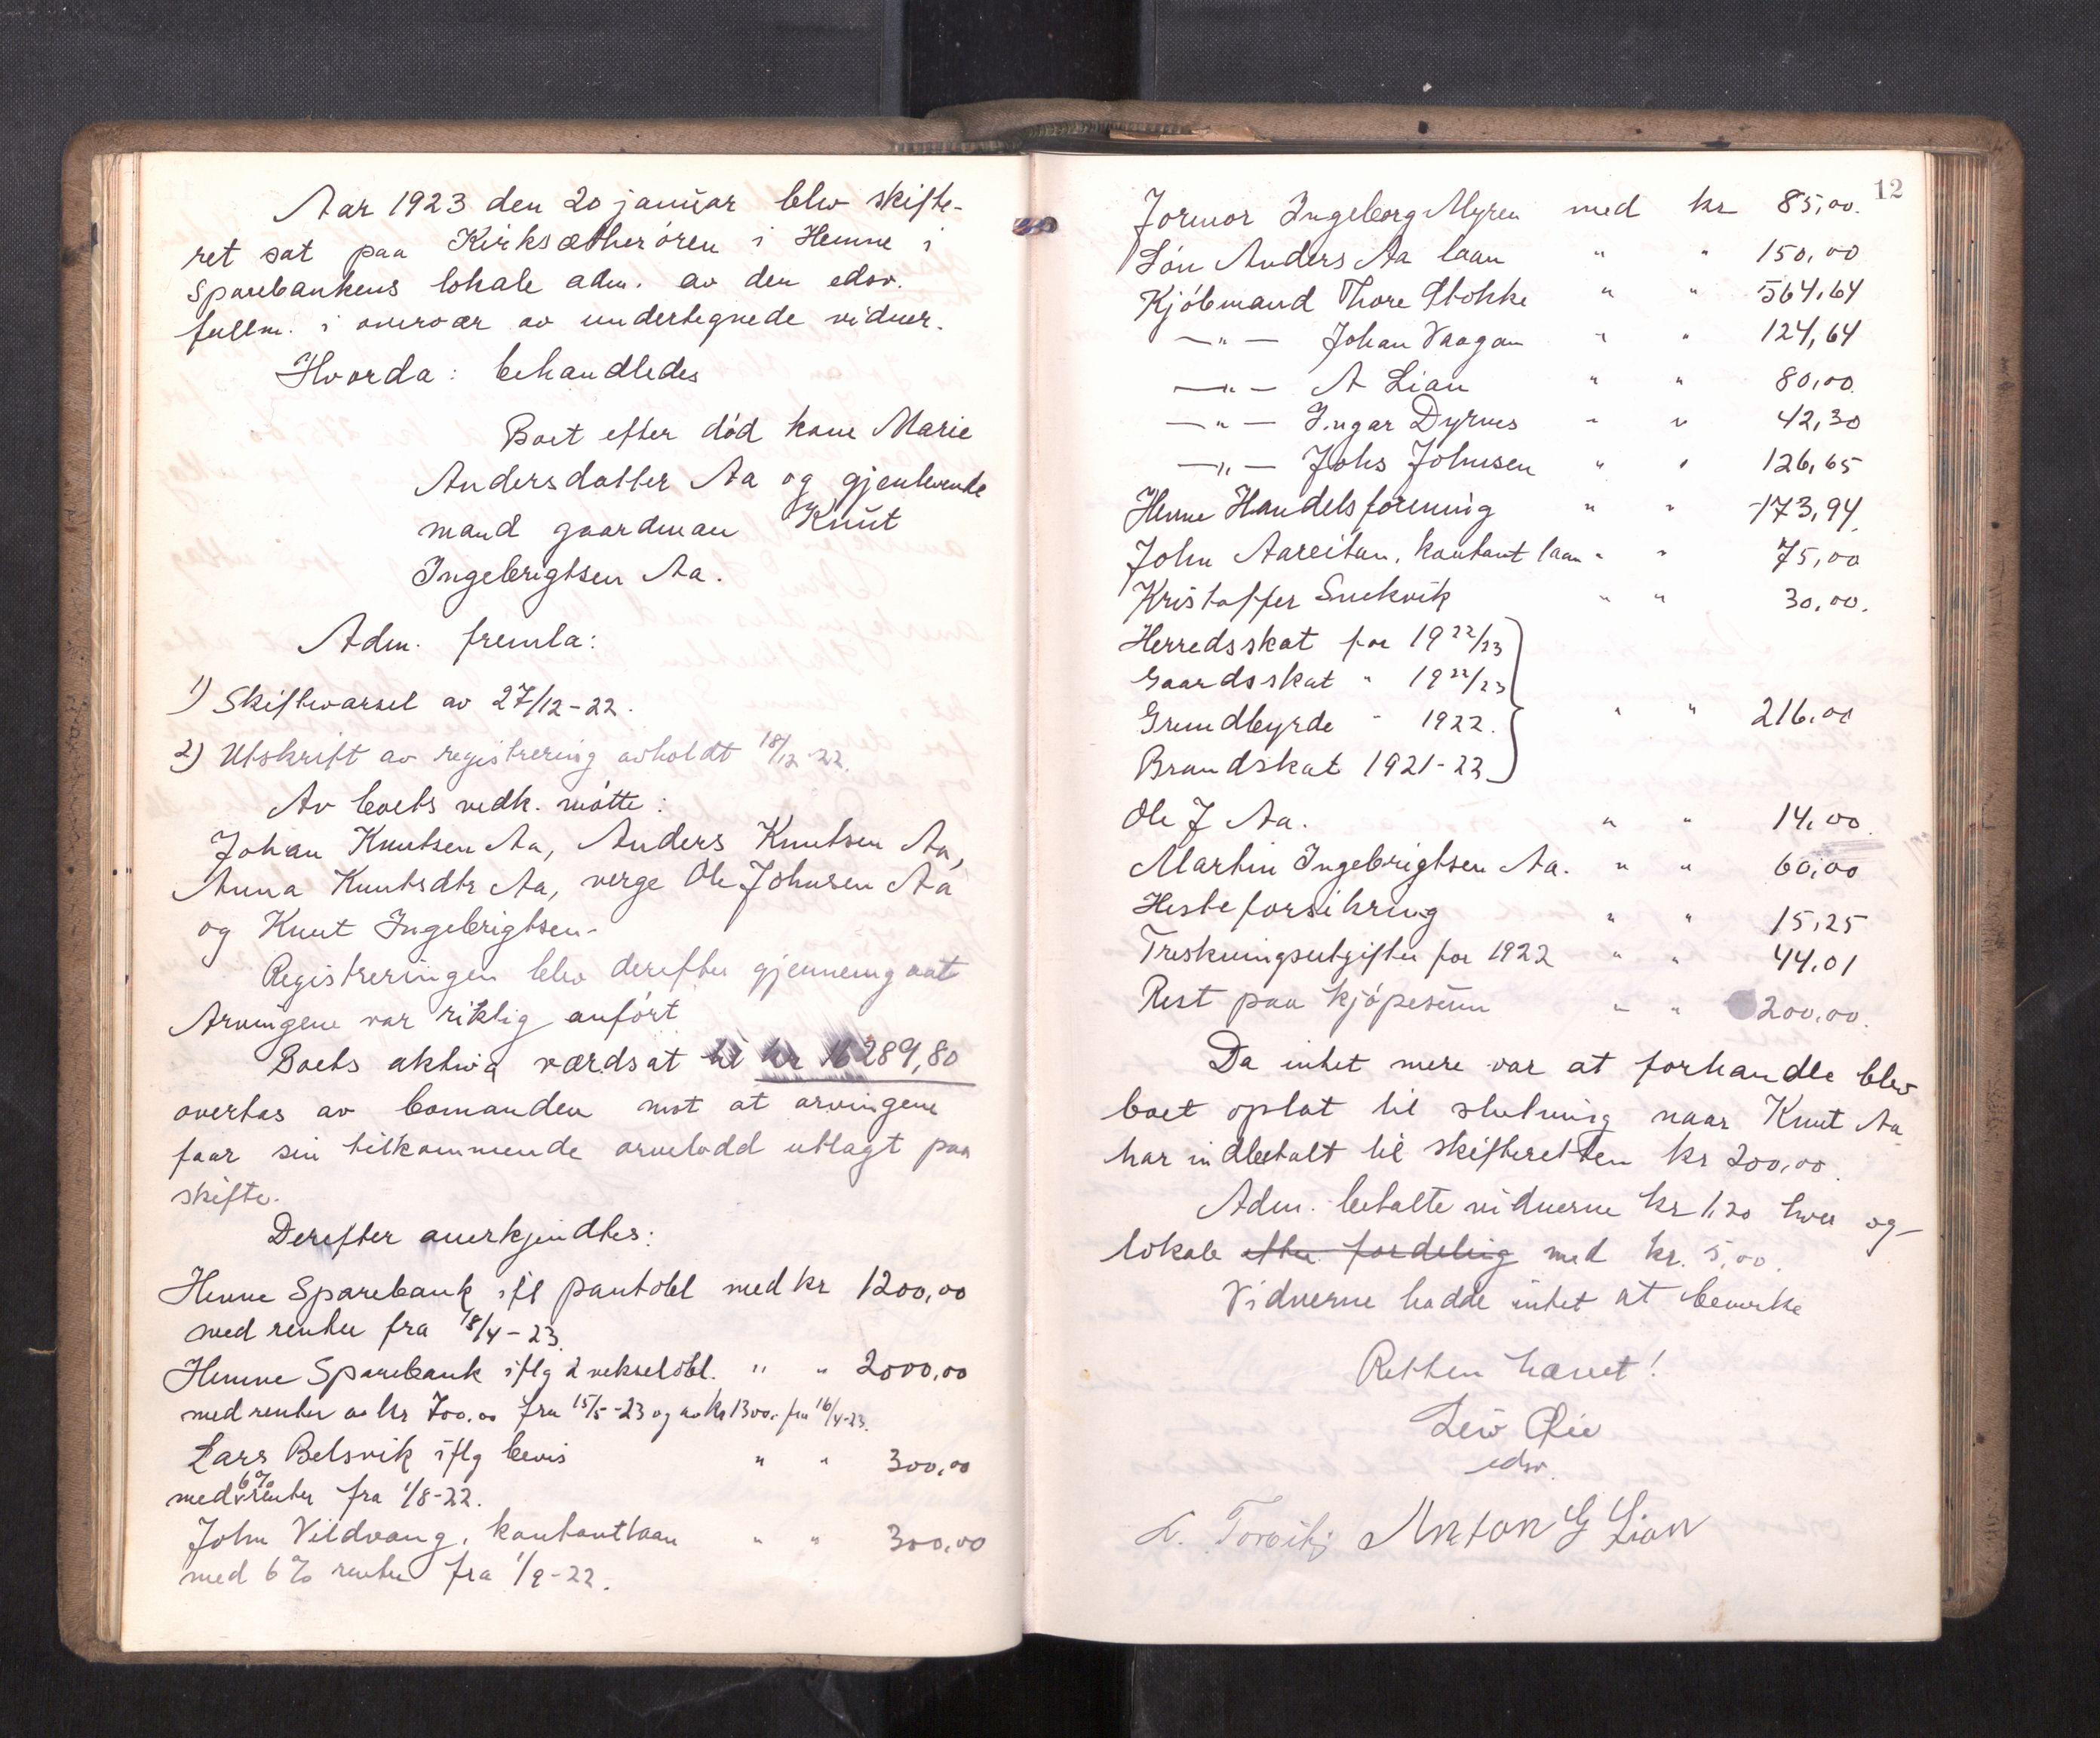 Aar 1923 den 20 januar blev skifte-
ret sat paa Kirksætherøren i Hemne i
Sparebankens lokale adm. av den edsv.
fullm. i overvær av undertegnede vidner.
Hvorda: behandledes
Boet efter död kone Marie
Andersdatter Aa og gjenlevende
mand gaardman Knut
Ingebrigtsen Aa.
Adm. fremla:
1) Skiftevarsel av 27/12-22.
2) Utskrift av registrering avholdt 18/12-22.
Av boets vedk. mötte:
Johan Knutsen Aa, Anders Knutsen Aa,
Anna Knutsdtr Aa, verge Ole Johnsen Aa
og Knut Ingebrigtsen-
Registreringen blev derefter gjennemgaat
Arvingene var riktig anfört
Boets aktiva værdsat til kr 16289,80
overtas av bomanden mot at arvingene
faar sin tilkommende arvelodd utlagt paa
skifte.
Derefter anerkjendtes:
Hemne Sparebank ifl pantobl med kr 1200,00
med renter fra 18/4-23.
Hemne Sparebank iflg 2 vekselobl. " " 2000,00
med renter av kr 700.00 fra 15/5-23 og av kr 1300.- fra 16/4-23.
Lars Belsvik iflg bevis " " 300,00
med 6% renter fra 1/8-22.
John Vildvang, kontantlaan " " 300,00
med 6% renter fra 1/9-22.
12
Jormor Ingeborg Myren med kr 85,00.
Lön Anders Aa laan " " 150,00
Kjöbmand Thore Stokke " " 564,64
—"— Johan Vaagan " " 124,64
—"— A Lian " " 80,00.
—"— Ingar Dyrnes " " 42,30
—"— Johs Johnsen " " 126,65
Hemne Handelsforening " " 173,94.
John Aareitan, kontant laan " " 75,00
Kristoffer Snekvik " " 30,00.
Herredsskat for 1922/23
Gaardsskat " 1922/23
Grundbyrde " 1922. " " 216,00
Brandskat 1921-22
Ole J Aa. " " 14,00.
Martin Ingebrigtsen Aa. " " 60,00
Hesteforsikring " " 15,25
Treskningsutgifter for 1922 " " 44,01
Rest paa kjöpesum " " 200,00.
Da intet mere var at forhandle blev
boet oplat til slutning naar Knut Aa
har indbetalt til skifteretten kr 200,00.
Adm. betalte vidnerne kr 1,20 hver og
lokale efter fordeling med kr. 5,00.
Vidnerne hadde intet at bemerke
Retten hævet!
edsv.
Anton G Lian